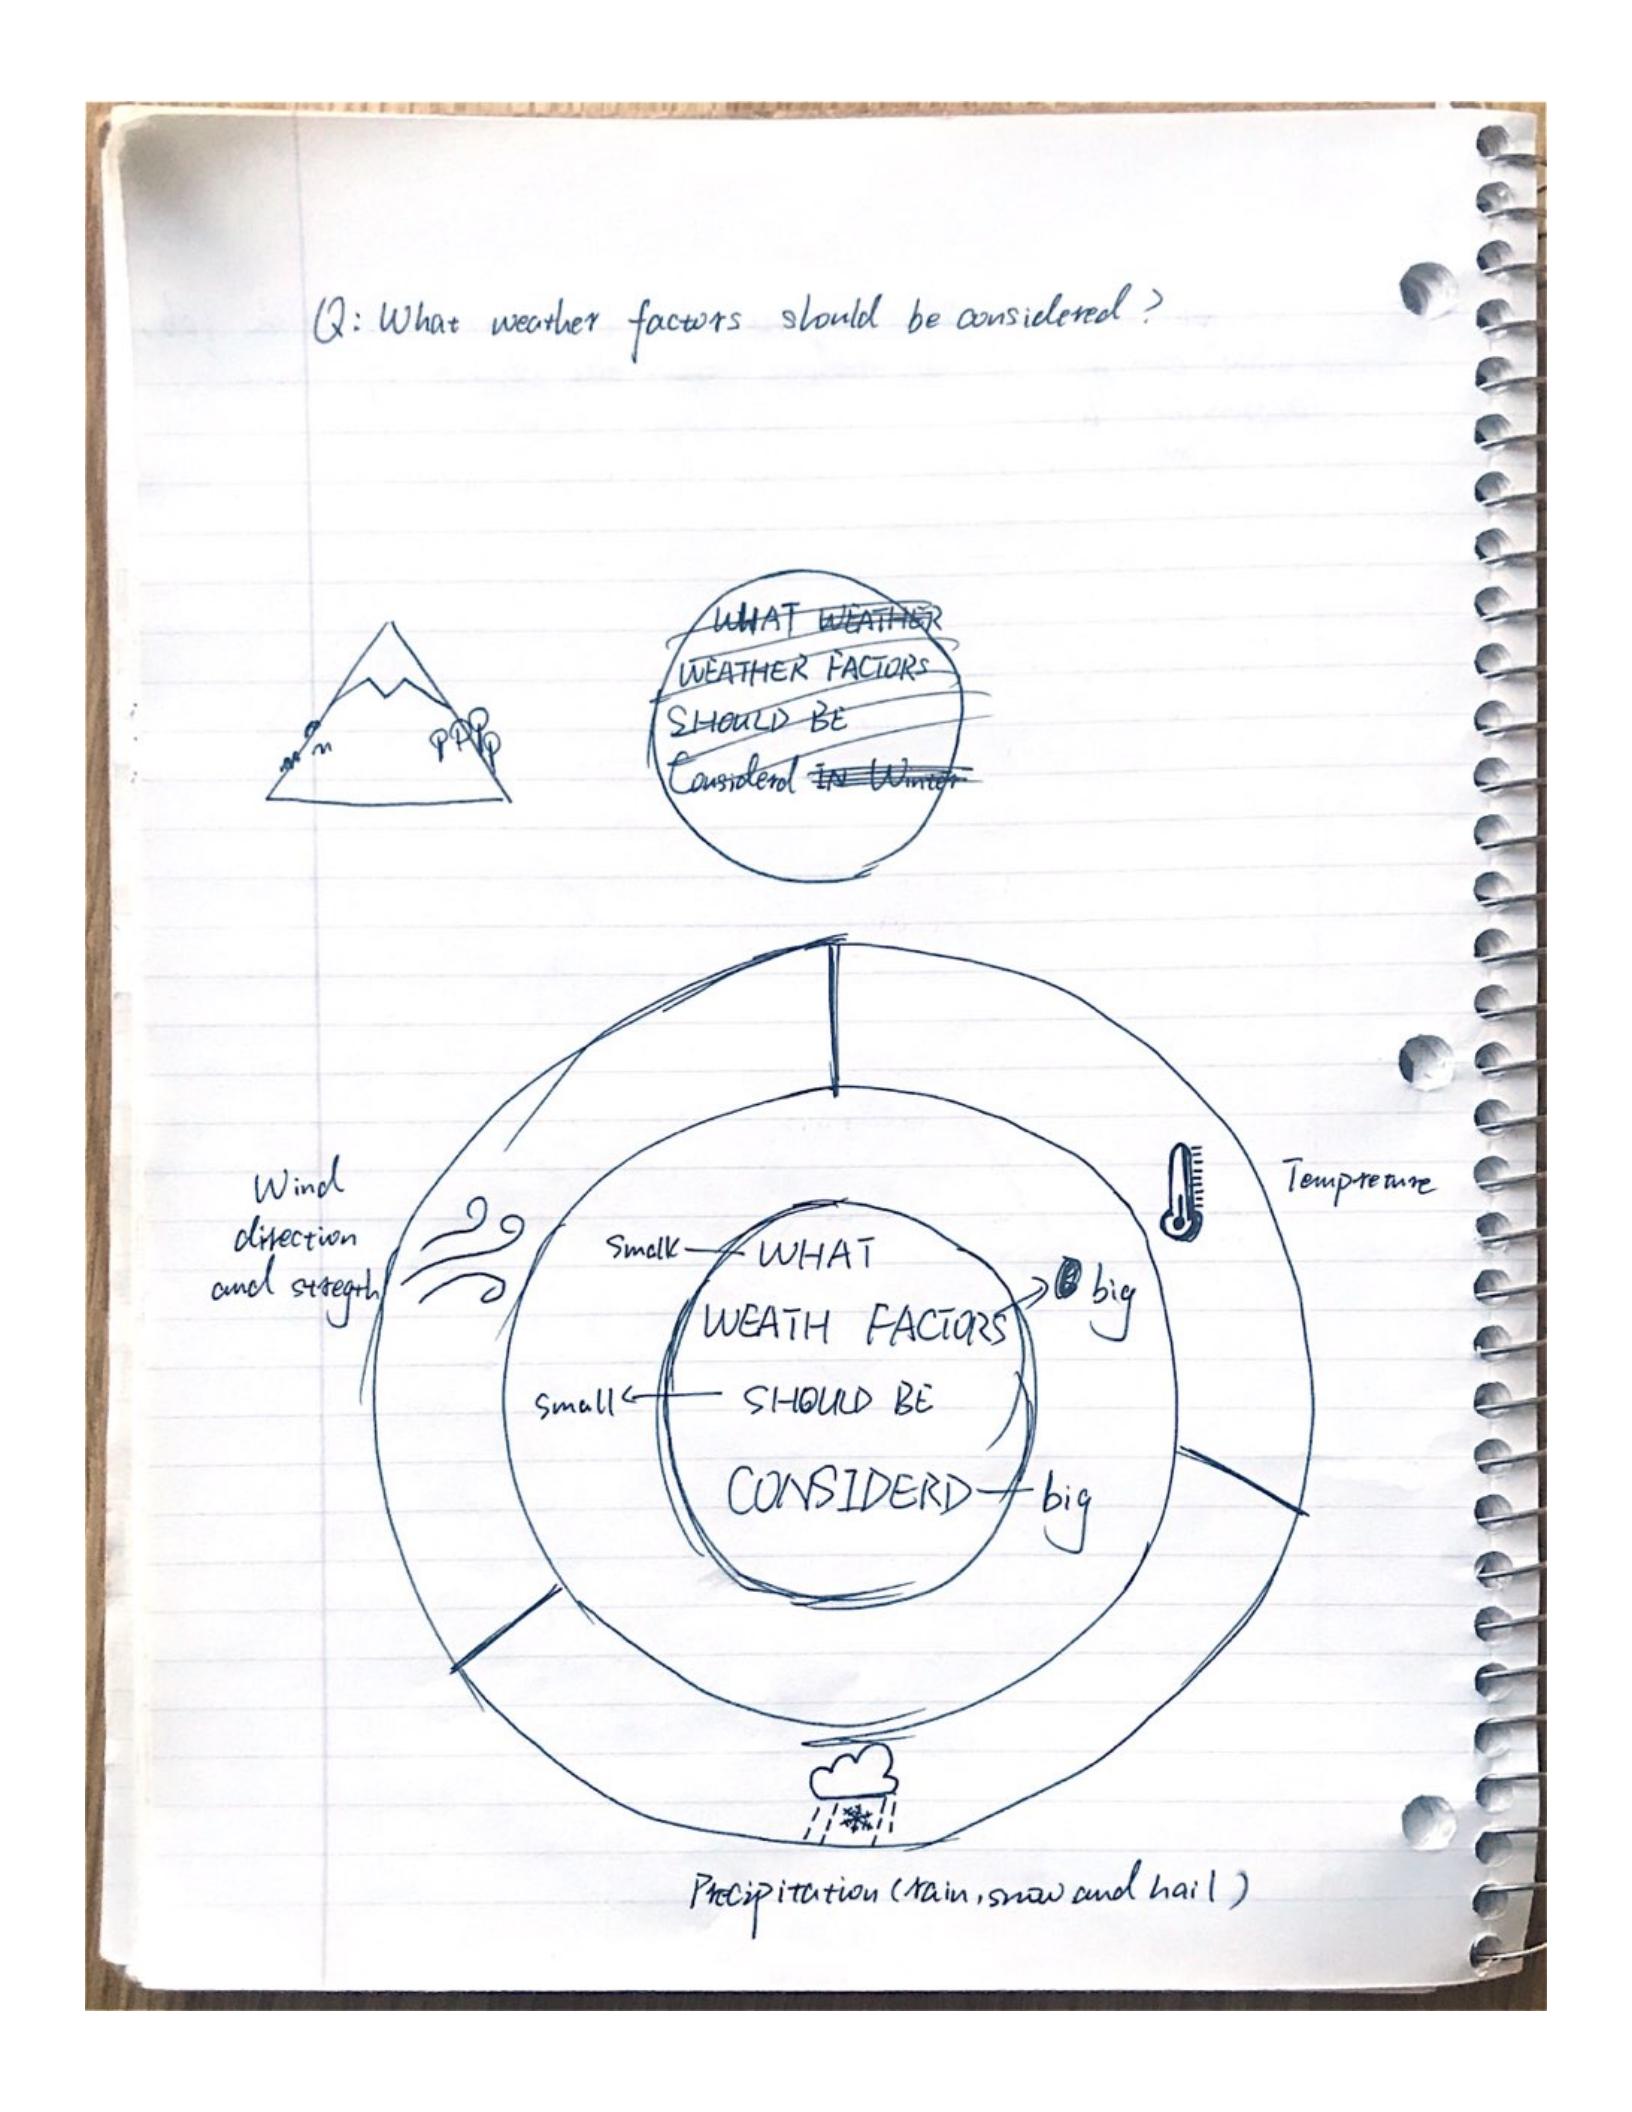 Q: What weather factors should be considered?
WHAT WEATHER
WEATHER FACTORS
SHOULD BE
Considerd IN Winter
Wind
direction
and stregth
Tempreture
Small WHAT
big
WEATH FACTORS
Small SHOULD BE
CONSIDERD big
Precipitation (rain, snow and hail)